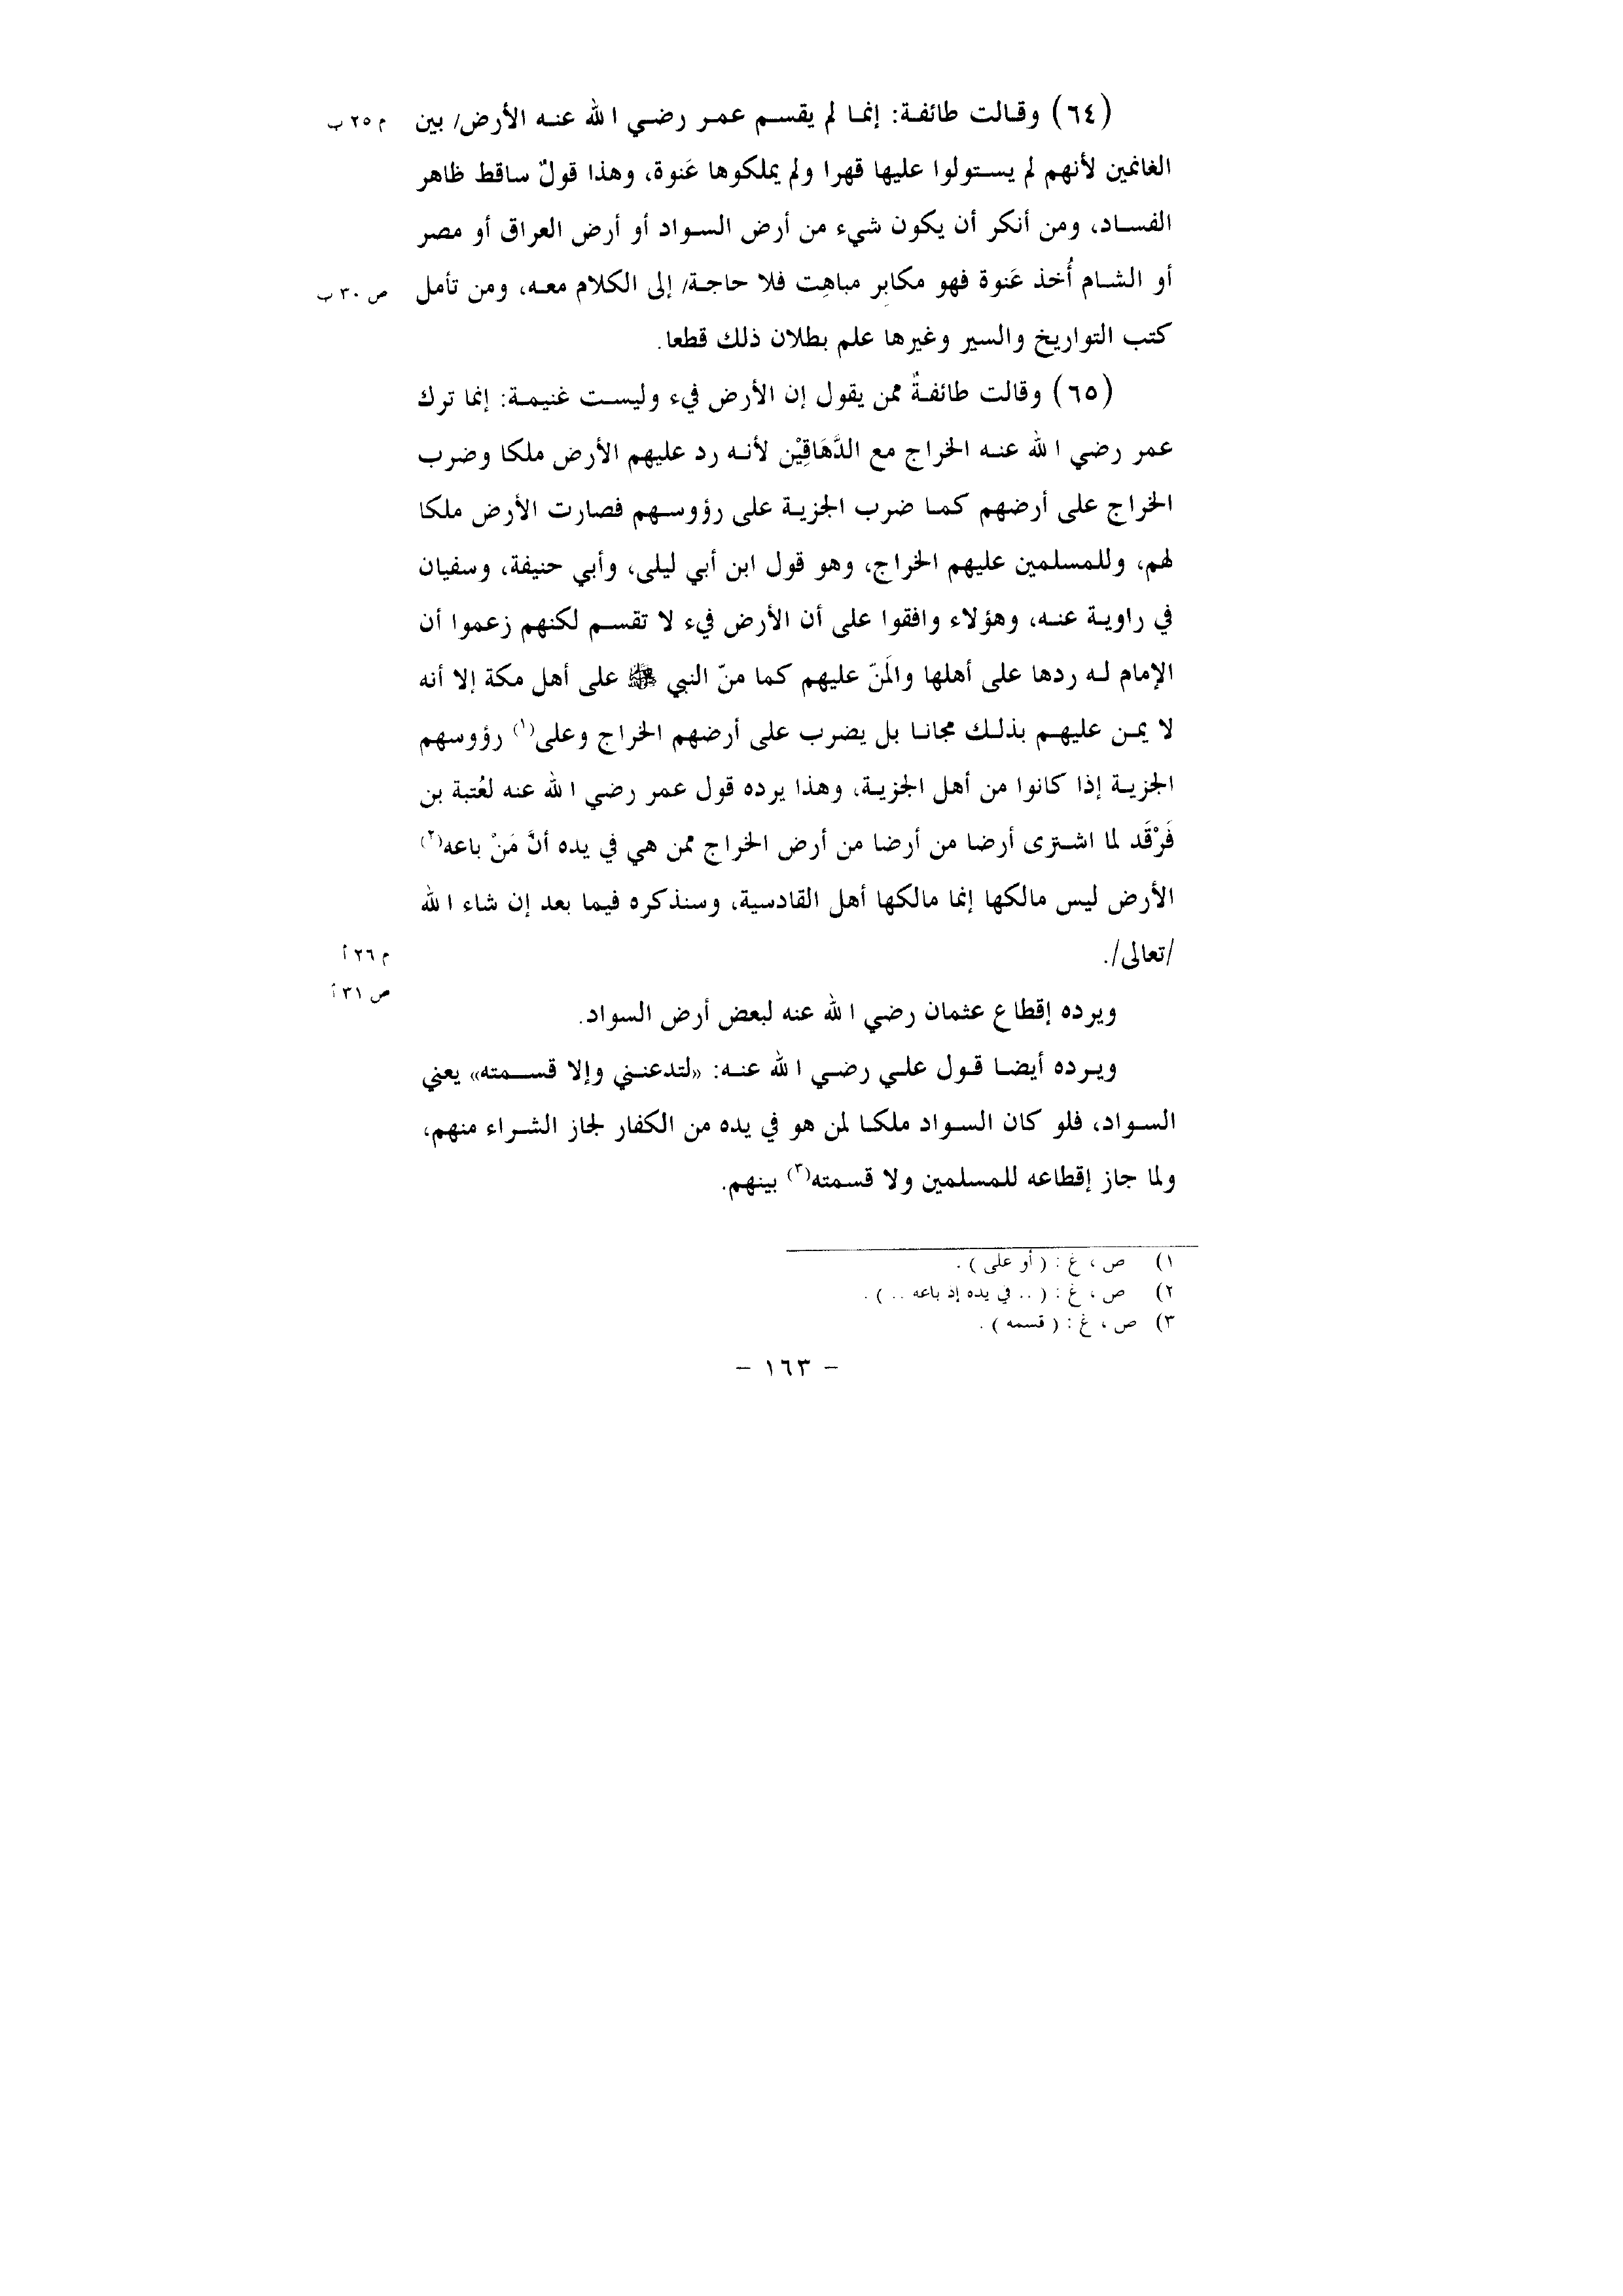 (٦٤) وقالت طائفة: إنما لم يقسم عمر رضي الله عنه الأرض/ بين م ٢٥ ب
الغانمين لأنهم لم يستولوا عليها قهرا ولم يملكوها عَنوة، وهذا قولٌ ساقط ظاهر
الفساد، ومن أنكر أن يكون شيء من أرض السواد أو أرض العراق أو مصر
أو الشام أُخذ عَنوة فهو مكابِر مباهِت فلا حاجة/ إلى الكلام معه، ومن تأمل ص ٣٠ ب
كتب التواريخ والسير وغيرها علم بطلان ذلك قطعا.
(٦٥) وقالت طائفةٌ ممن يقول إن الأرض فيء وليست غنيمة: إنما ترك
عمر رضي الله عنه الخراج مع الدَّهَاقِيْن لأنه رد عليهم الأرض ملكا وضرب
الخراج على أرضهم كما ضرب الجزية على رؤوسهم فصارت الأرض ملكا
لهم، وللمسلمين عليهم الخراج، وهو قول ابن أبي ليلى، وأبي حنيفة، وسفيان
في راوية عنه، وهؤلاء وافقوا على أن الأرض فيء لا تقسم لكنهم زعموا أن
الإمام له ردها على أهلها والَمنّ عليهم كما منّ النبي ﷺ على أهل مكة إلا أنه
لا يمن عليهم بذلك مجانا بل يضرب على أرضهم الخراج وعلى(١) رؤوسهم
الجزية إذا كانوا من أهل الجزية، وهذا يرده قول عمر رضي الله عنه لعُتبة بن
فَرْقَد لما اشترى أرضا من أرضا من أرض الخراج ممن هي في يده أنَّ مَنْ باعه(٢)
الأرض ليس مالكها إنما مالكها أهل القادسية، وسنذكره فيما بعد إن شاء الله
/تعالى/. م ٢٦ أ
ص ٣١ أ
ويرده إقطاع عثمان رضي الله عنه لبعض أرض السواد.
ويرده أيضا قول علي رضي الله عنه: «لتدعني وإلا قسمته» يعني
السواد، فلو كان السواد ملكا لمن هو في يده من الكفار لجاز الشراء منهم،
ولما جاز إقطاعه للمسلمين ولا قسمته(٣) بينهم.
١) ص ، غ : ( أو على ) .
٢) ص ، غ : ( .. في يده إذ باعه .. ) .
٣) ص ، غ : ( قسمه ) .
– ١٦٣ –